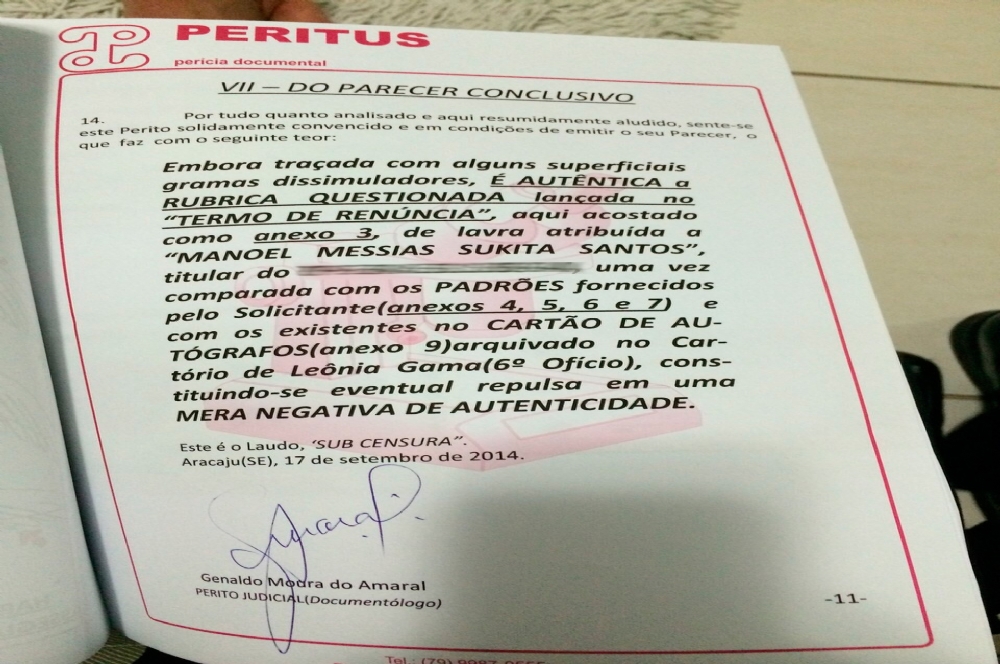 PERITUS
perícia documental
VII – DO PARECER CONCLUSIVO
14. Por tudo quanto analisado e aqui resumidamente aludido, sente-se
este Perito solidamente convencido e em condições de emitir o seu Parecer, o
que faz com o seguinte teor:
Embora traçada com alguns superficiais
gramas dissimuladores, É AUTÊNTICA a
RUBRICA QUESTIONADA lançada no
"TERMO DE RENÚNCIA", aqui acostado
como anexo 3, de lavra atribuída a
"MANOEL MESSIAS SUKITA SANTOS",
titular do uma vez
comparada com os PADRÕES fornecidos
pelo Solicitante(anexos 4, 5, 6 e 7) e
com os existentes no CARTÃO DE AU-
TÓGRAFOS(anexo 9)arquivado no Car-
tório de Leônia Gama(6º Ofício), cons-
tituindo-se eventual repulsa em uma
MERA NEGATIVA DE AUTENTICIDADE.
Este é o Laudo, 'SUB CENSURA".
Aracaju(SE), 17 de setembro de 2014.
Genaldo Moura do Amaral
PERITO JUDICIAL(Documentólogo)
-11-
Tel.: (79)